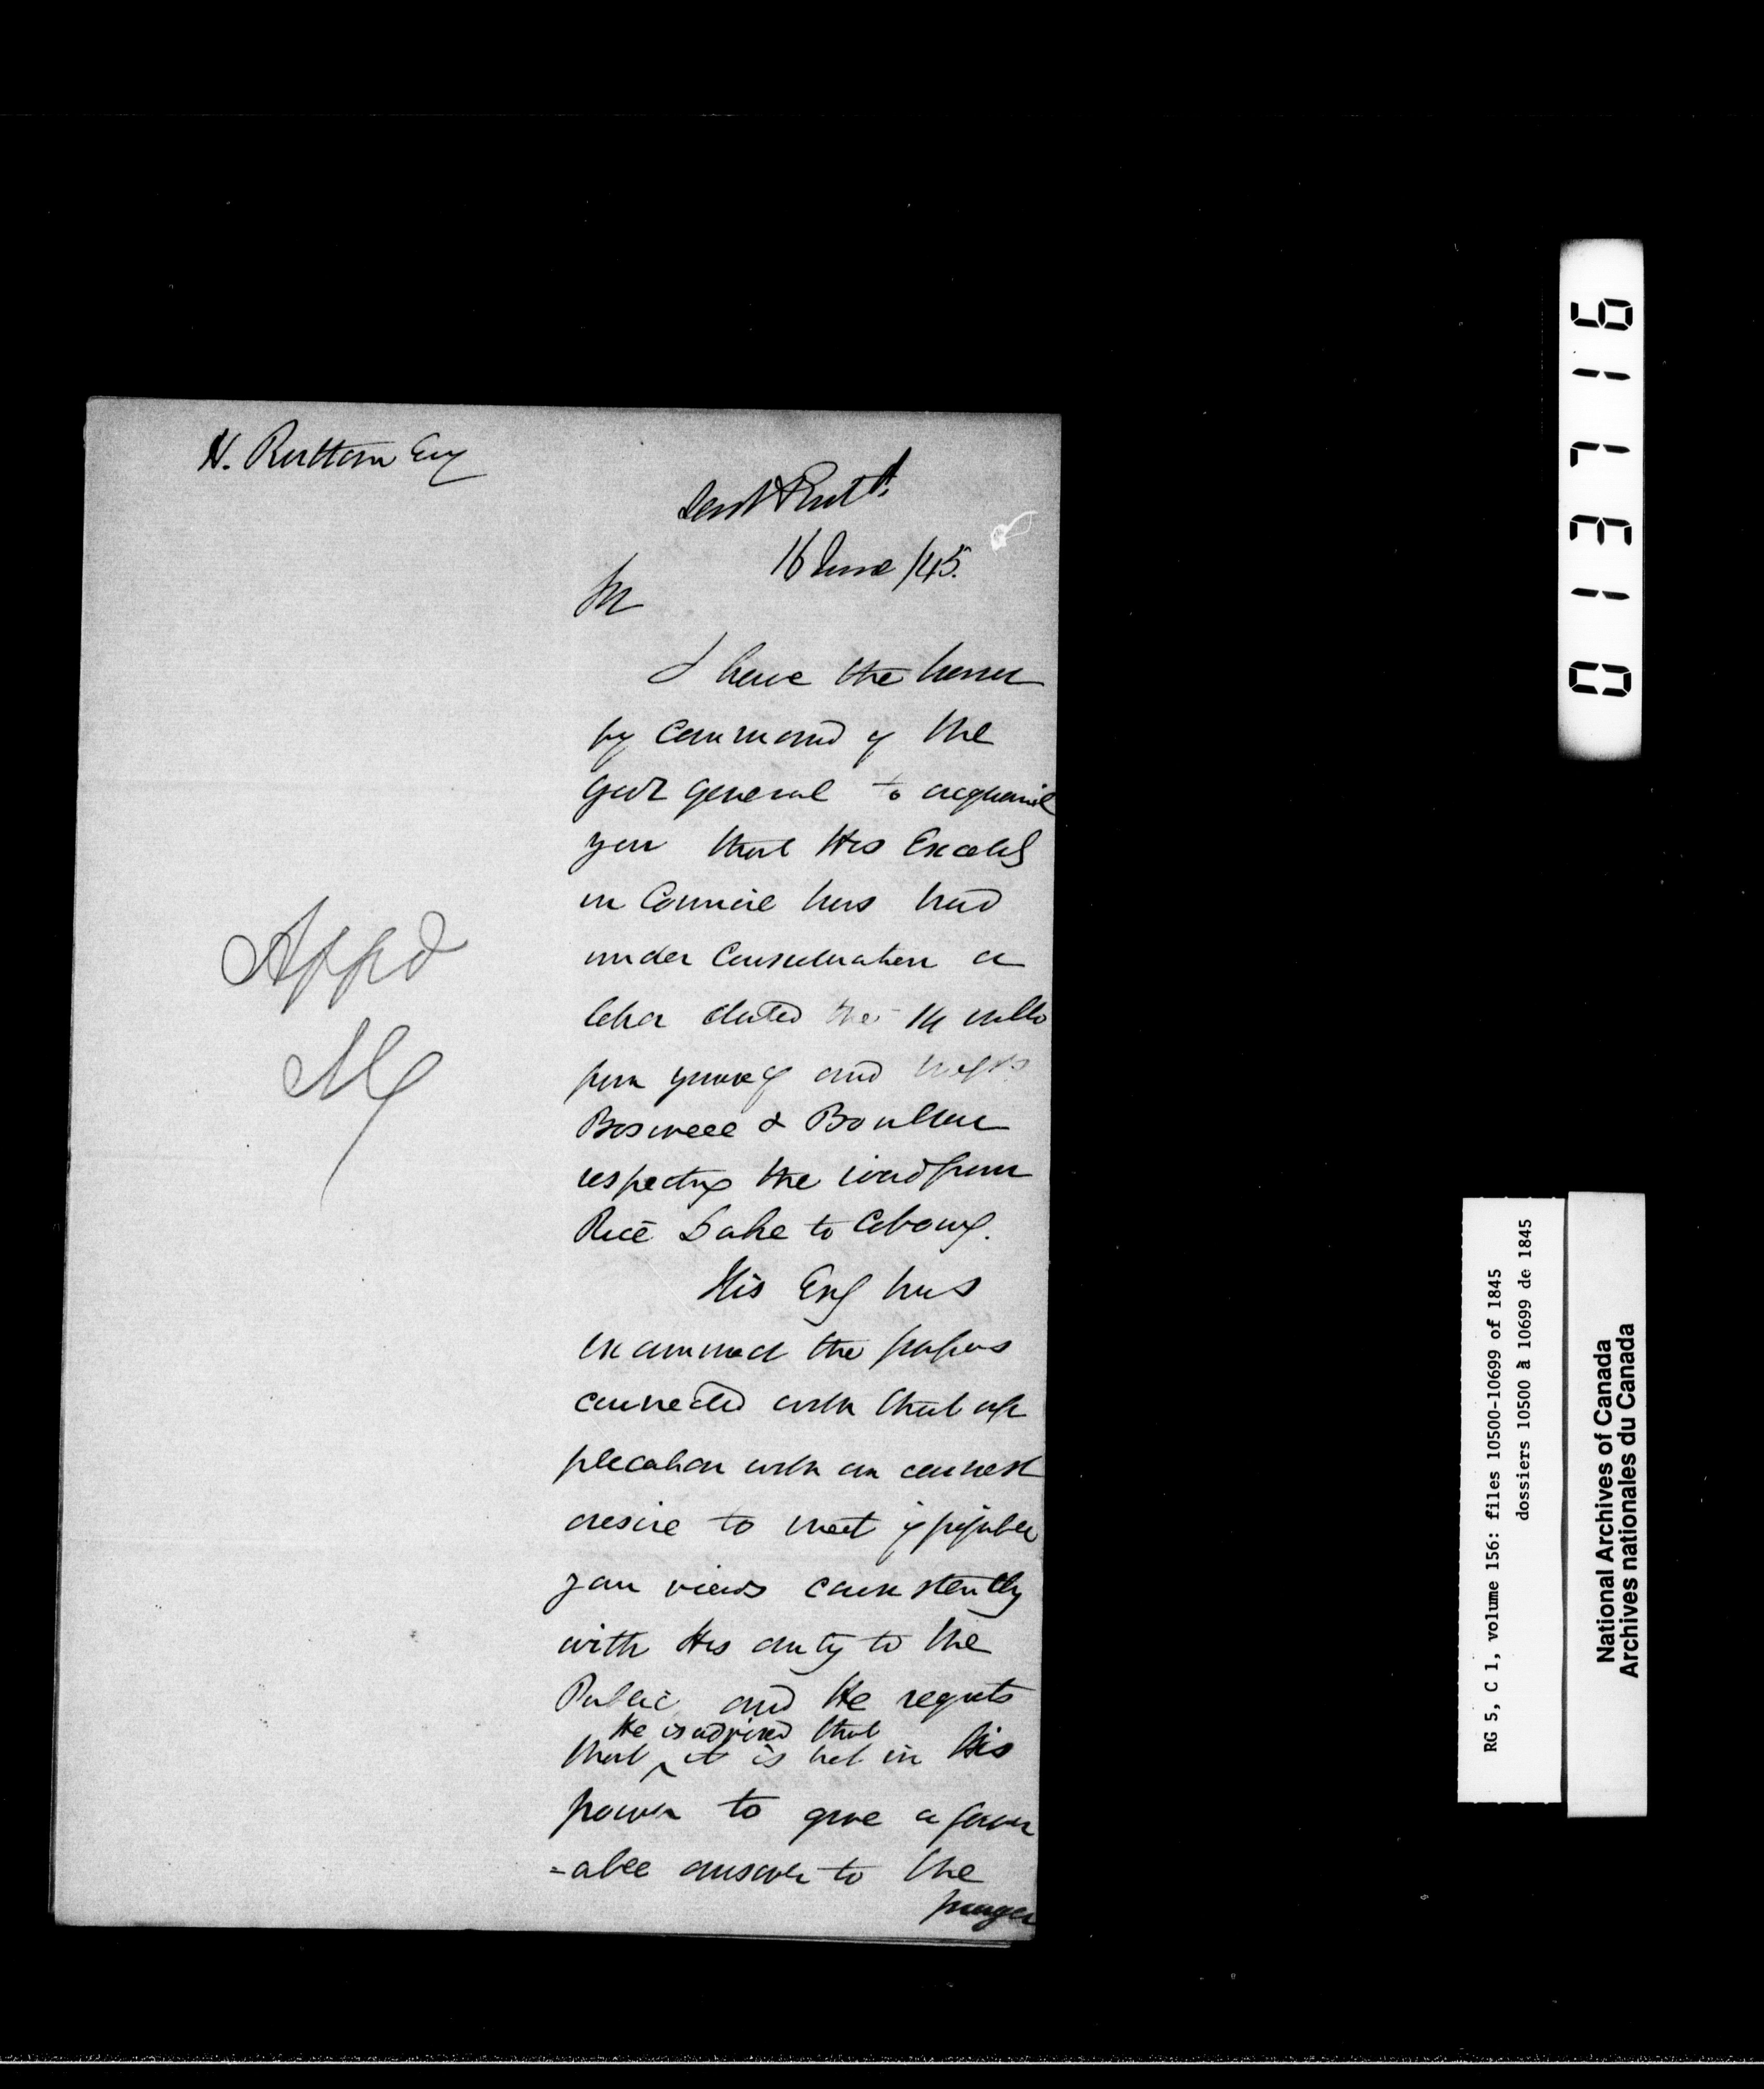 H. Ruttan Esq
16 June /45.
Sir
I have the honor
by Command of the
Govr General to acquaint
you that His Excelly
in Council has had
under Consideration a
letter dated the 14 ulto
from yourself and Messrs
Boswell & Boulton
respecting the road from
Rice Lake to Cobourg.
His Exy has
examined the papers
connected with that ap
plication with an earnest
desire to meet if possible
your views consistently
with His duty to the
Public and He regrets
He is advised that
that ^ it is not in His
power to give a favor
=able answer to the
prayer
Appd
M
0137116
RG 5, C 1, volume 156: files 10500-10699 of 1845
dossiers 10500 à 10699 de 1845
National Archives of Canada
Archives nationales du Canada